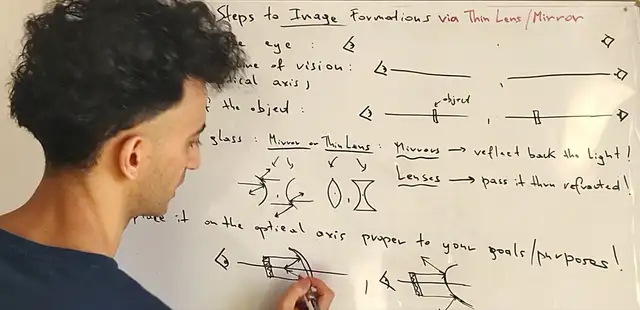 Steps to Image Formations via Thin Lens/Mirror
eye :
of vision :
axis ;
the object :
object
glass : Mirror or Thin Lens : Mirrors → reflect back the light !
Lenses → pass it thru refracted !
it on the optical axis proper to your goals/purposes !